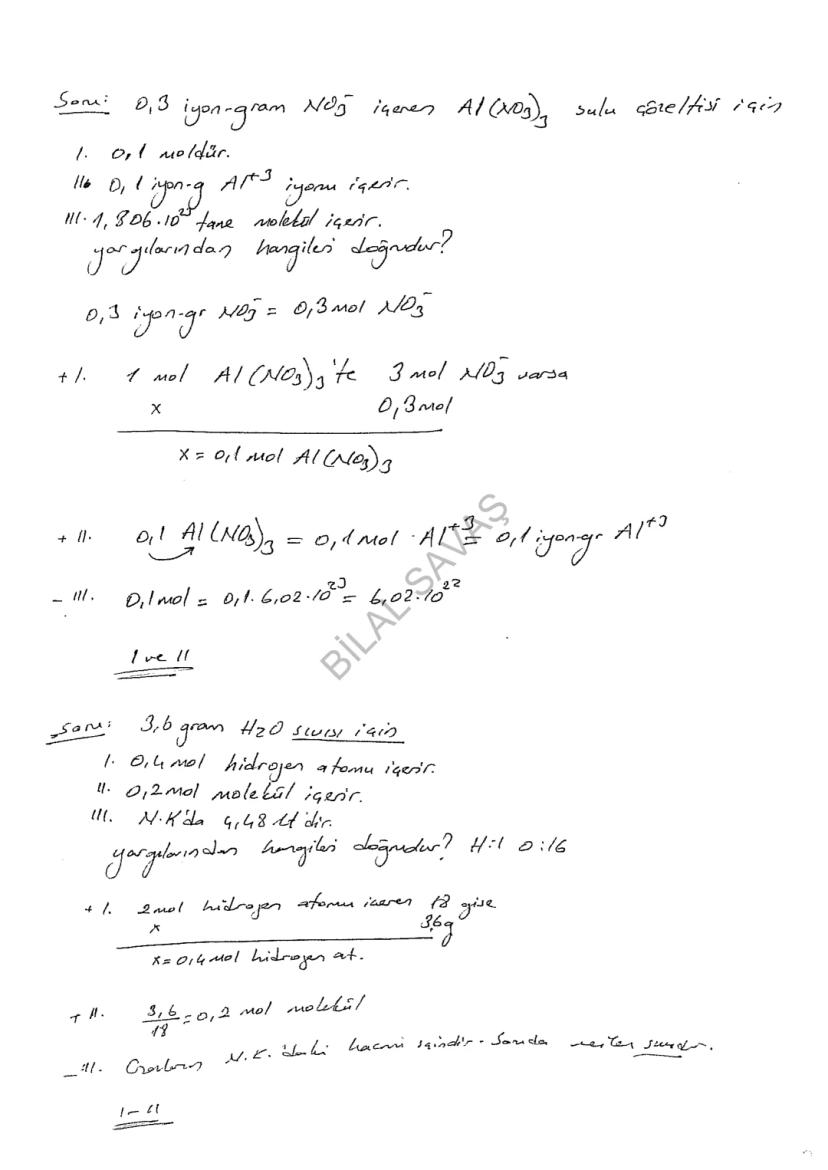 Soru: 0,3 iyon-gram NO₃⁻ içeren Al(NO₃)₃ sulu çözeltisi için
I. 0,1 moldür.
II. 0,1 iyon-g Al⁺³ iyonu içerir.
III. 1,806.10²³ tane molekül içerir.
yargılarından hangileri doğrudur?
0,3 iyon-gr NO₃⁻ = 0,3 mol NO₃⁻
+ I. 1 mol Al(NO₃)₃'te 3 mol NO₃⁻ varsa
x 0,3 mol
x = 0,1 mol Al(NO₃)₃
+ II. 0,1 Al(NO₃)₃ = 0,1 mol Al⁺³ = 0,1 iyon-gr Al⁺³
- III. 0,1 mol = 0,1. 6,02.10²³ = 6,02.10²²
I ve II
BİLAL SAVAŞ
Soru: 3,6 gram H₂O sıvısı için
I. 0,4 mol hidrojen atomu içerir.
II. 0,2 mol molekül içerir.
III. N.K'da 4,48 lt dir.
yargılarından hangileri doğrudur? H:1 O:16
+ I. 2 mol hidrojen atomu içeren 18 g ise
x 3,6g
x = 0,4 mol hidrojen at.
+ II. 3,6/18 = 0,2 mol molekül
- III. Gazların N.K.'daki hacmi içindir. Soruda
I - II